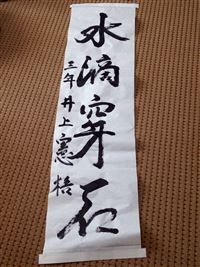 水滴穿石
三年 井上憲梧